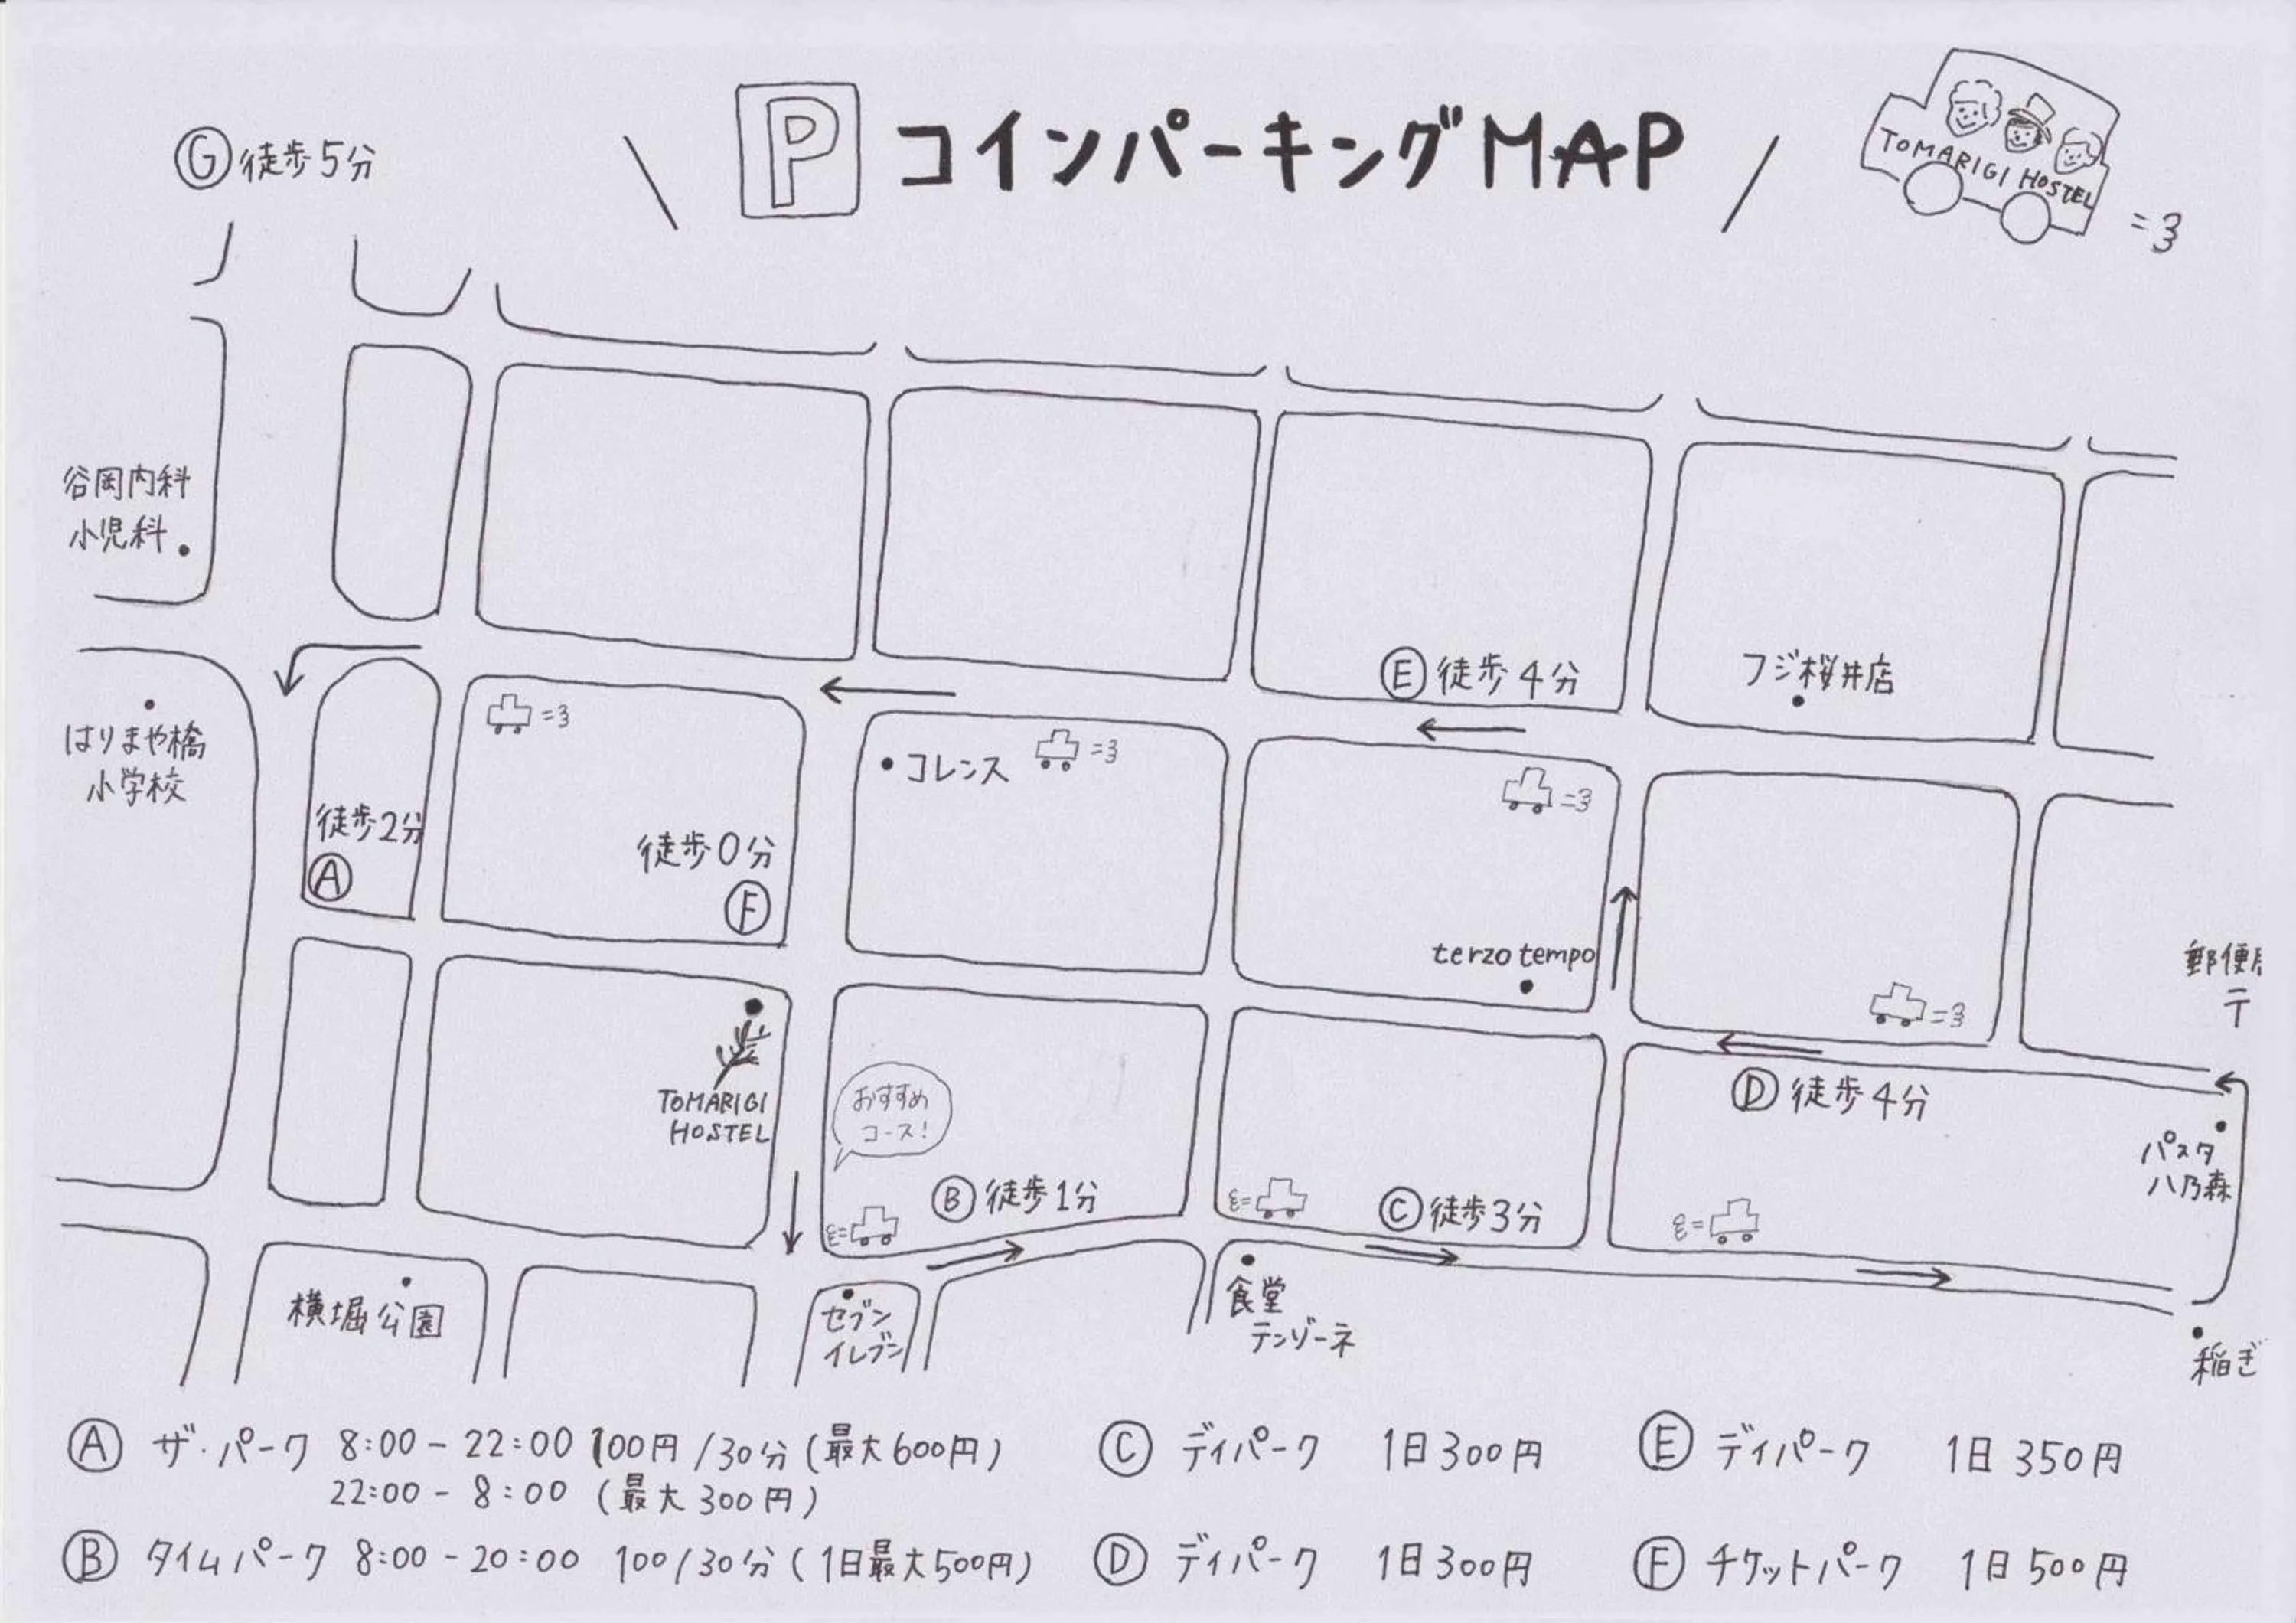 P コインパーキングMAP
TOMARIGI HOSTEL
G 徒歩5分
谷岡内科
小児科
E 徒歩4分
フジ桜井店
はりまや橋
小学校
コレンス
徒歩2分
A
徒歩0分
F
terzo tempo
郵便局
〒
TOMARIGI
HOSTEL
おすすめ
コース!
D 徒歩4分
パスタ
八乃森
B 徒歩1分
C 徒歩3分
横堀公園
セブン
イレブン
食堂
テンゾーネ
稲ぎ
A ザ・パーク 8:00-22:00 100円/30分(最大600円)
22:00-8:00 (最大300円)
B タイムパーク 8:00-20:00 100/30分(1日最大500円)
C ディパーク 1日300円
D ディパーク 1日300円
E ディパーク 1日350円
F チケットパーク 1日500円